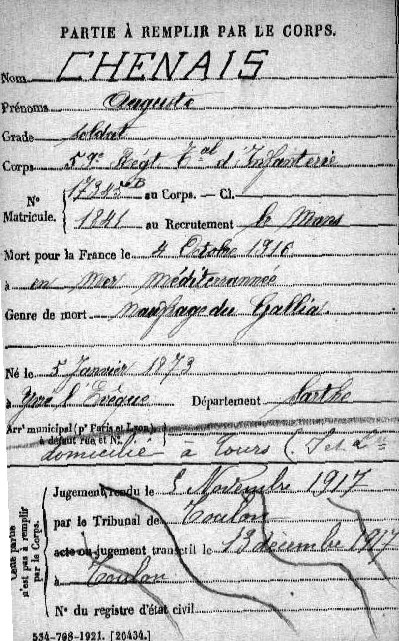 PARTIE À REMPLIR PAR LE CORPS.
Nom CHENAIS
Prénoms Auguste
Grade Soldat
Corps 59e Régt Tal d'Infanterie
No Matricule. { 17345 bis au Corps. — Cl.
1841 au Recrutement le Mans
Mort pour la France le 4 Octobre 1916
à en Mer Méditerrannée
Genre de mort naufrage du Gallia
Né le 5 Janvier 1873
à Yvré l'Evèque Département Sarthe
Arrt municipal (pr Paris et Lyon),
à défaut rue et No.
domicilié à Tours (I et L
Cette partie n'est pas à remplir par le Corps.
Jugement rendu le 5 Novembre 1917
par le Tribunal de Toulon
acte ou jugement transcrit le 13 décembre 1917
à Toulon
No du registre d'état civil
534-708-1921. [26434.]